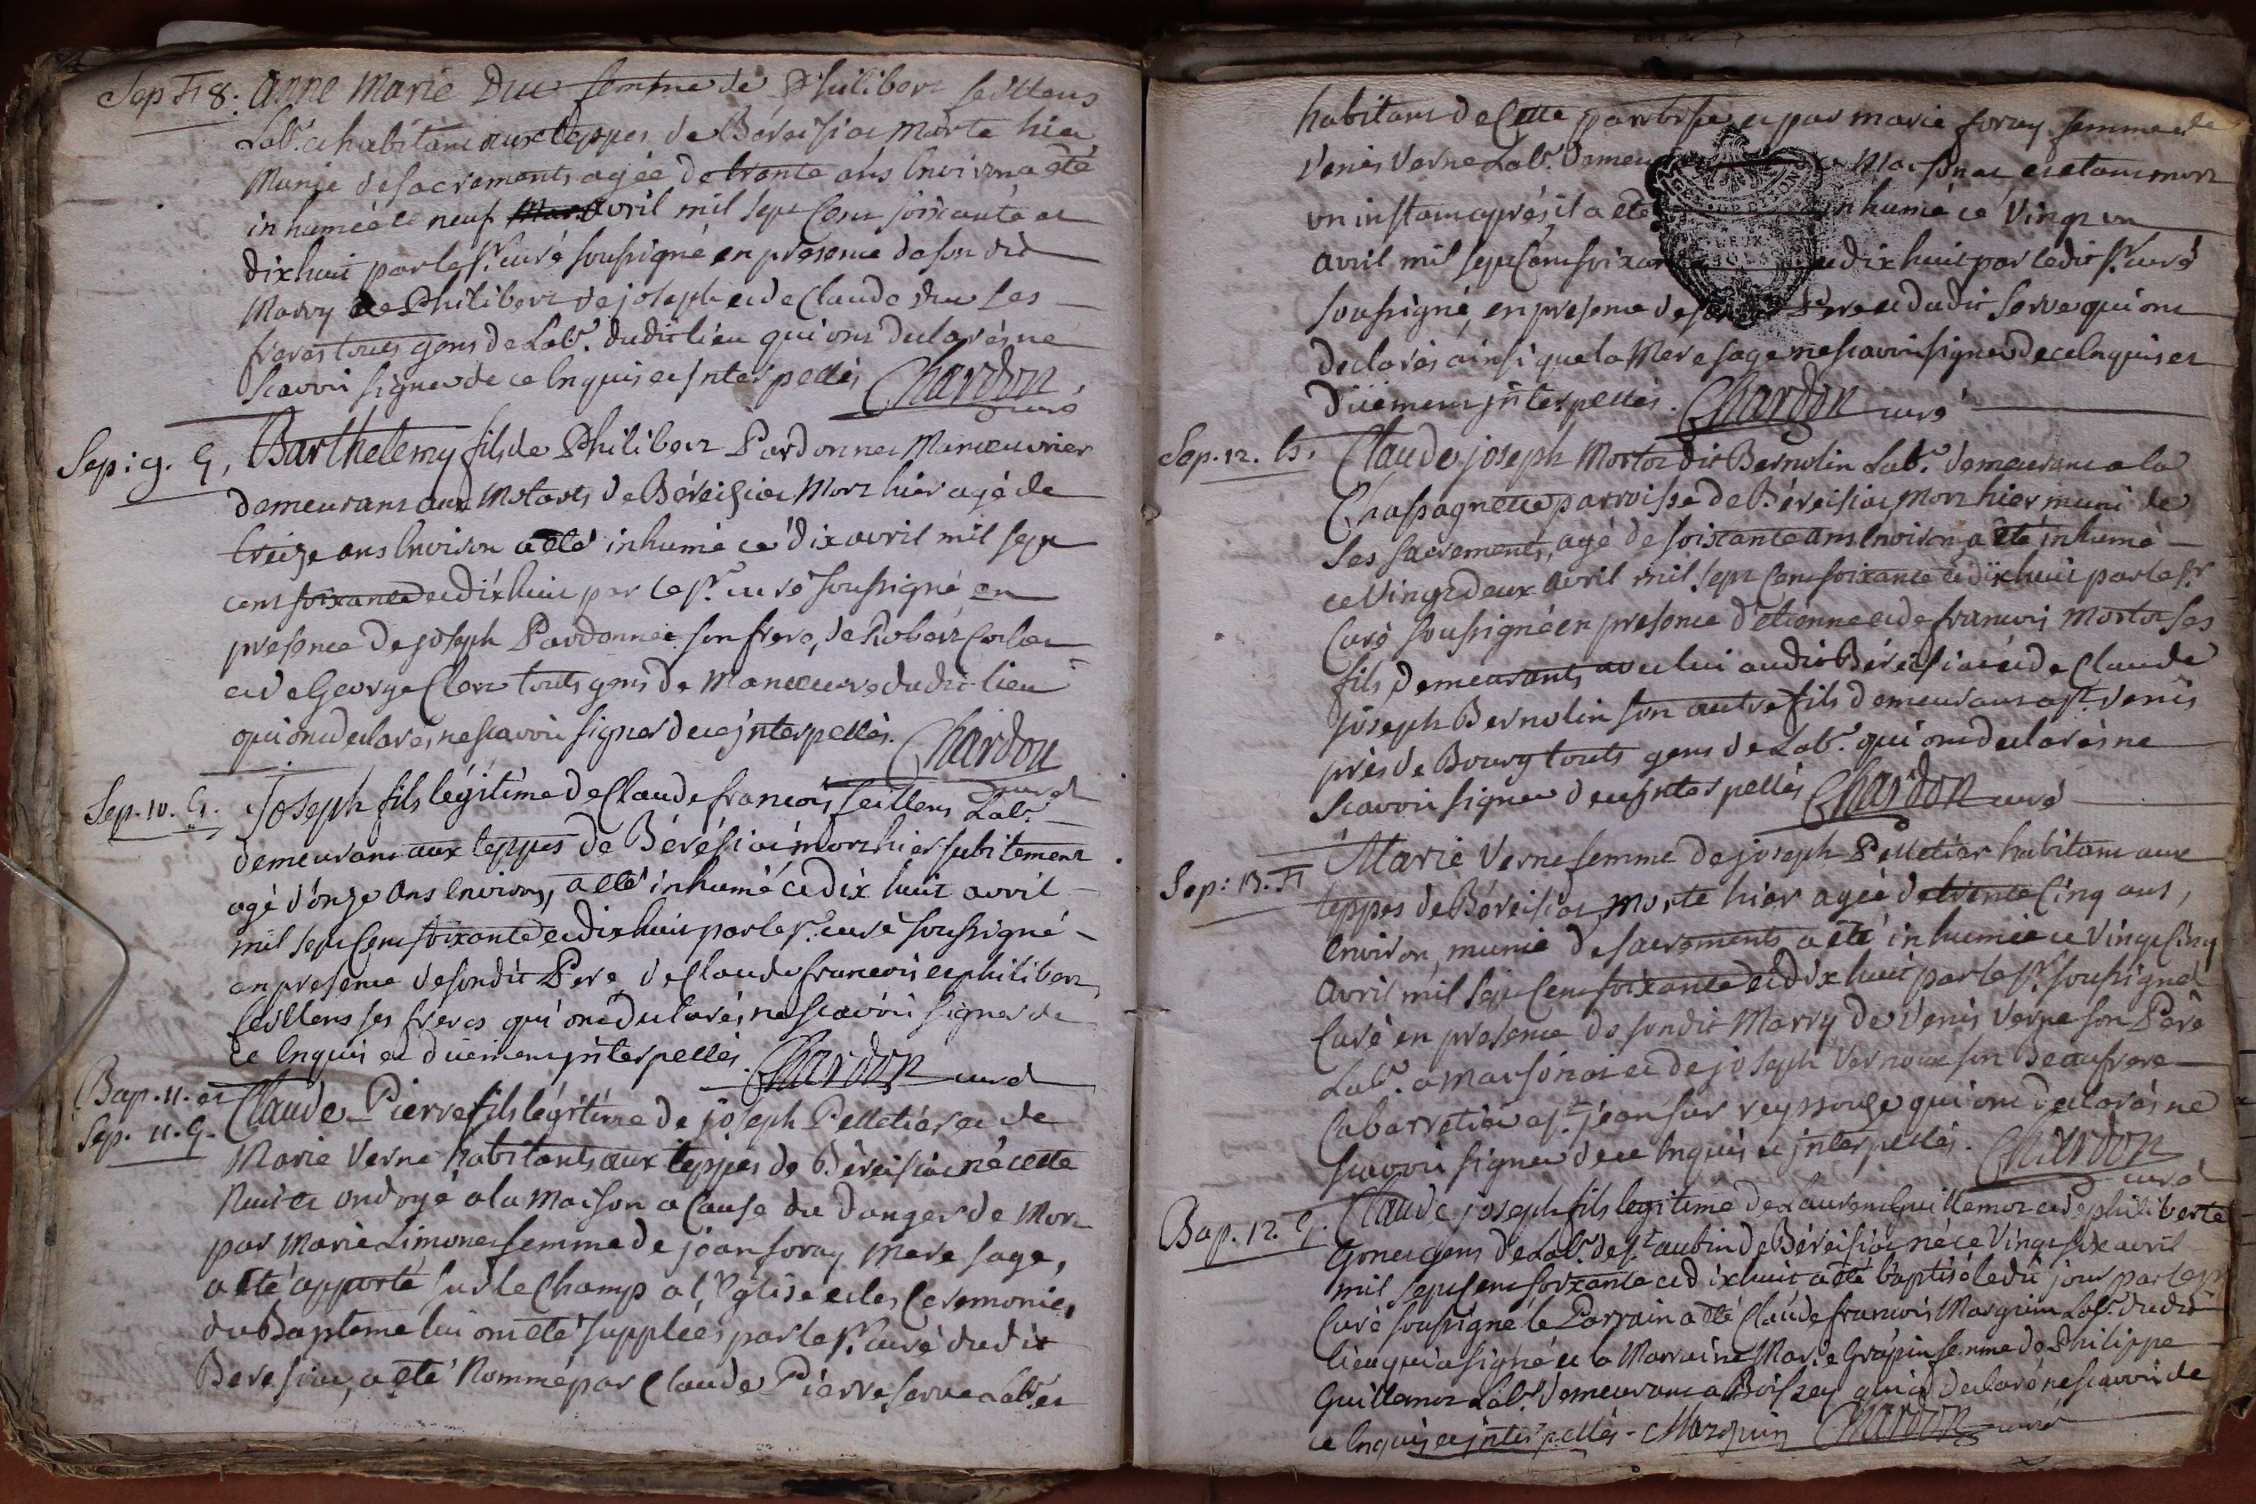 Sep. F 8. Anne Marie Duc femme de Philibert seillens
Labr. et habitant aux teppes de Béréisiat morte hier
munie de sacrements agée de trante ans environ a eté
inhumée ce neuf avril mil sept cent soixante et
dixhuit par le sr. curé soussigné en presence de son dit
Marry de Philibert de joseph et de Claude duc ses
freres touts gens de Labr. dudit lieu qui ont declarés ne
scavoir signer de ce enquis et interpellés Chardon
curé
Sep. 9. G. Barthelemy fils de Philibert Pardonnet Manœuvrier
demeurant aux Motards de Béréisiat mort hier agé de
treize ans environ a eté inhumé ce dix avril mil sept
cent soixante et dixhuit par le sr. curé soussigné en
presence de joseph Pardonnet son frere, de Robert
et de George Clerc touts gens de manœuvre dudit lieu
qui ont declarés ne scavoir signer de ce interpellés. Chardon
curé
Sep. 10. G. Joseph fils légitime de Claude francois seillens Labr.
demeurant aux teppes de Bérésiat mort hier subitement
agé d'onze ans environ, a eté inhumé ce dix huit avril
mil sept cent soixante et dixhuit par le sr. curé soussigné
en presence de sondit Pere, de Claude francois et philibert
seillens ses freres qui ont declarés ne scavoir signer de
ce enquis et düement interpellés. Chardon curé
Bap. 11. et
Sep. 11. G. Claude Pierre fils légitime de joseph Pelletier et de
Marie Verne habitants aux teppes de Béréisiat né cette
nuit et ondoyé a la maison a cause du danger de mort
par Marie Limonet femme de jean foray mere sage,
a eté apporté sur le champ a l'Eglise et les Ceremonies
du Baptême lui ont eté suppleés par le sr. curé dudit
Beresiat, a eté Nommé par Claude Pierre serve Labr. et
habitant de Cette parroisse et par marie foray femme de
denis Verne Labr. demeu Marsonas et etant mort
un instant après, il a eté inhumé ce Vingt un
avril mil sept cent soixan et dix huit par ledit sr. curé
soussigné, en presence de son Pere et dudit serve qui ont
declarés ainsi que la Mere sage ne scavoir signer de ce enquis et
düement interpellés. Chardon curé
Sep. 12. G. Claude joseph Mortor dit Bernolin Labr. demeurant a la
Chassagnette parroisse de Béréisiat mort hier muni de
ses sacrements, agé de soixante ans environ, a eté inhumé
ce Vingt deux avril mil sept cent soixante et dixhuit par le sr.
Curé soussigné en presence d'etienne et de francois Mortor ses
fils demeurants avec lui audit Béréisiat et de Claude
joseph Bernolin son autre fils demeurant a st. denis
près de Bourg touts gens de Labr. qui ont declarés ne
scavoir signer de ce interpellés Chardon curé
Sep. 13. F Marie Verne femme de joseph Pelletier habitant aux
teppes de Béréisiat morte hier agée de trente Cinq ans,
environ, munie de sacrements a eté inhumée ce Vingt Cinq
avril mil sept cent soixante et dix huit par le sr. soussigné
Curé en presence de sondit Marry de denis Verne son Pere
Labr. a marsonas et de joseph Vernoux son Beaufrere
Cabarretier a st. jean sur reyssouze qui ont declarés ne
scavoir signer de ce enquis et interpellés. Chardon
curé
Bap. 12. G. Claude joseph fils legitime de Laurent guillemot et de philiberte
Gonet gens de Labr. de st. aubin de Béréisiat né ce Vingt six avril
mil sept cent soixante et dixhuit a eté baptisé le dit jour par le sr.
Curé soussigné le Parrain a eté Claude francois Marguin Labr. dudit
lieu qui a signé et la Marraine Marie Grapin femme de Philippe
Guillemot Labr. demeurant a Boissey qui a declaré ne scavoir de
ce enquis et interpellés - Marguin Chardon curé